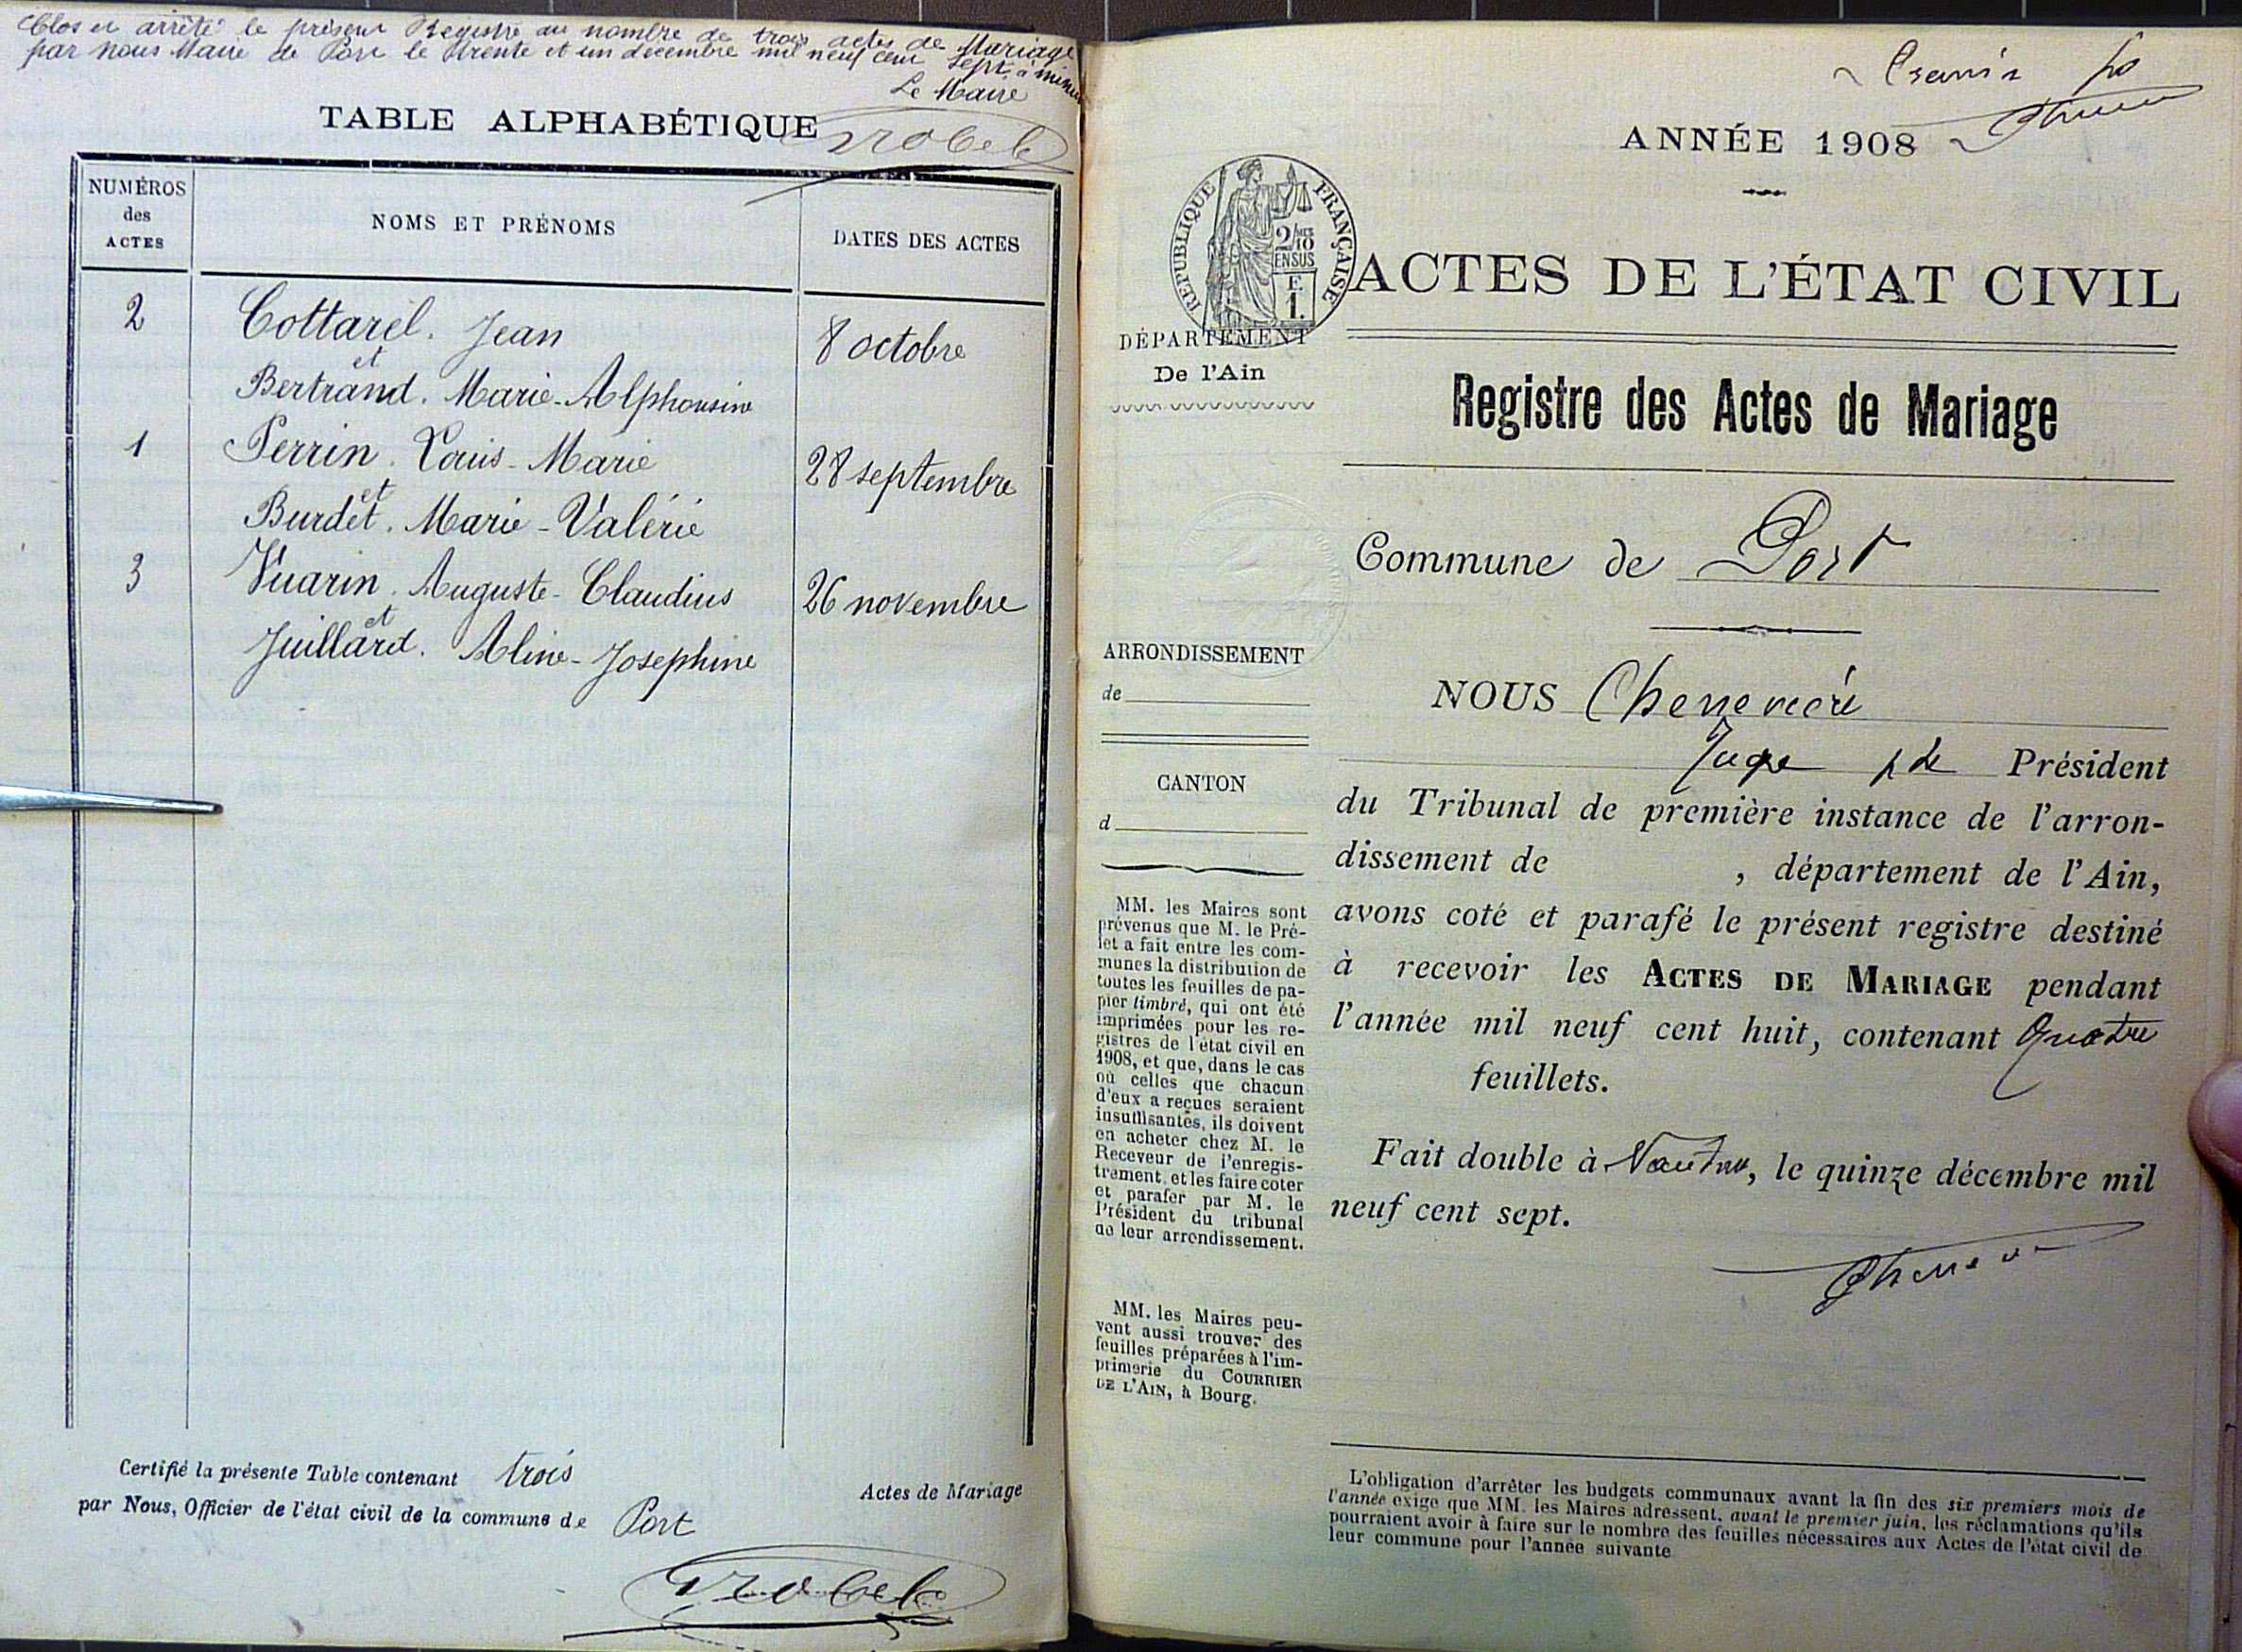 Clos et arrêté le présent Registre au nombre de trois actes de Mariage
par nous Maire de Port le trente et un décembre mil neuf cent sept à minuit
Le Maire
TABLE ALPHABÉTIQUE
NUMÉROS
des
ACTES
NOMS ET PRÉNOMS
DATES DES ACTES
2
Cottarel. Jean
8 octobre
et
Bertrand. Marie-Alphonsine
1
Perrin. Louis-Marie
28 septembre
et
Burdet. Marie-Valérie
3
Vuarin. Auguste-Claudius
26 novembre
et
Juillard. Aline-Josephine
Certifié la présente Table contenant trois
Actes de Mariage
par Nous, Officier de l'état civil de la commune de Port
ANNÉE 1908
RÉPUBLIQUE FRANÇAISE
2/10
EN SUS
F.
1.
ACTES DE L'ÉTAT CIVIL
DÉPARTEMENT
De l'Ain
Registre des Actes de Mariage
Commune de Port
ARRONDISSEMENT
de
CANTON
d
MM. les Maires sont
prévenus que M. le Pré-
fet a fait entre les com-
munes la distribution de
toutes les feuilles de pa-
pier timbré, qui ont été
imprimées pour les re-
gistres de l'état civil en
1908, et que, dans le cas
où celles que chacun
d'eux a reçues seraient
insuffisantes, ils doivent
en acheter chez M. le
Receveur de l'enregis-
trement, et les faire coter
et parafer par M. le
Président du tribunal
de leur arrondissement.
MM. les Maires peu-
vent aussi trouver des
feuilles préparées à l'im-
primerie du COURRIER
DE L'AIN, à Bourg.
NOUS Chenevière
Juge pde Président
du Tribunal de première instance de l'arron-
dissement de , département de l'Ain,
avons coté et parafé le présent registre destiné
à recevoir les ACTES DE MARIAGE pendant
l'année mil neuf cent huit, contenant Quatre
feuillets.
Fait double à Nantua, le quinze décembre mil
neuf cent sept.
L'obligation d'arrêter les budgets communaux avant la fin des six premiers mois de
l'année exige que MM. les Maires adressent, avant le premier juin, les réclamations qu'ils
pourraient avoir à faire sur le nombre des feuilles nécessaires aux Actes de l'état civil de
leur commune pour l'année suivante